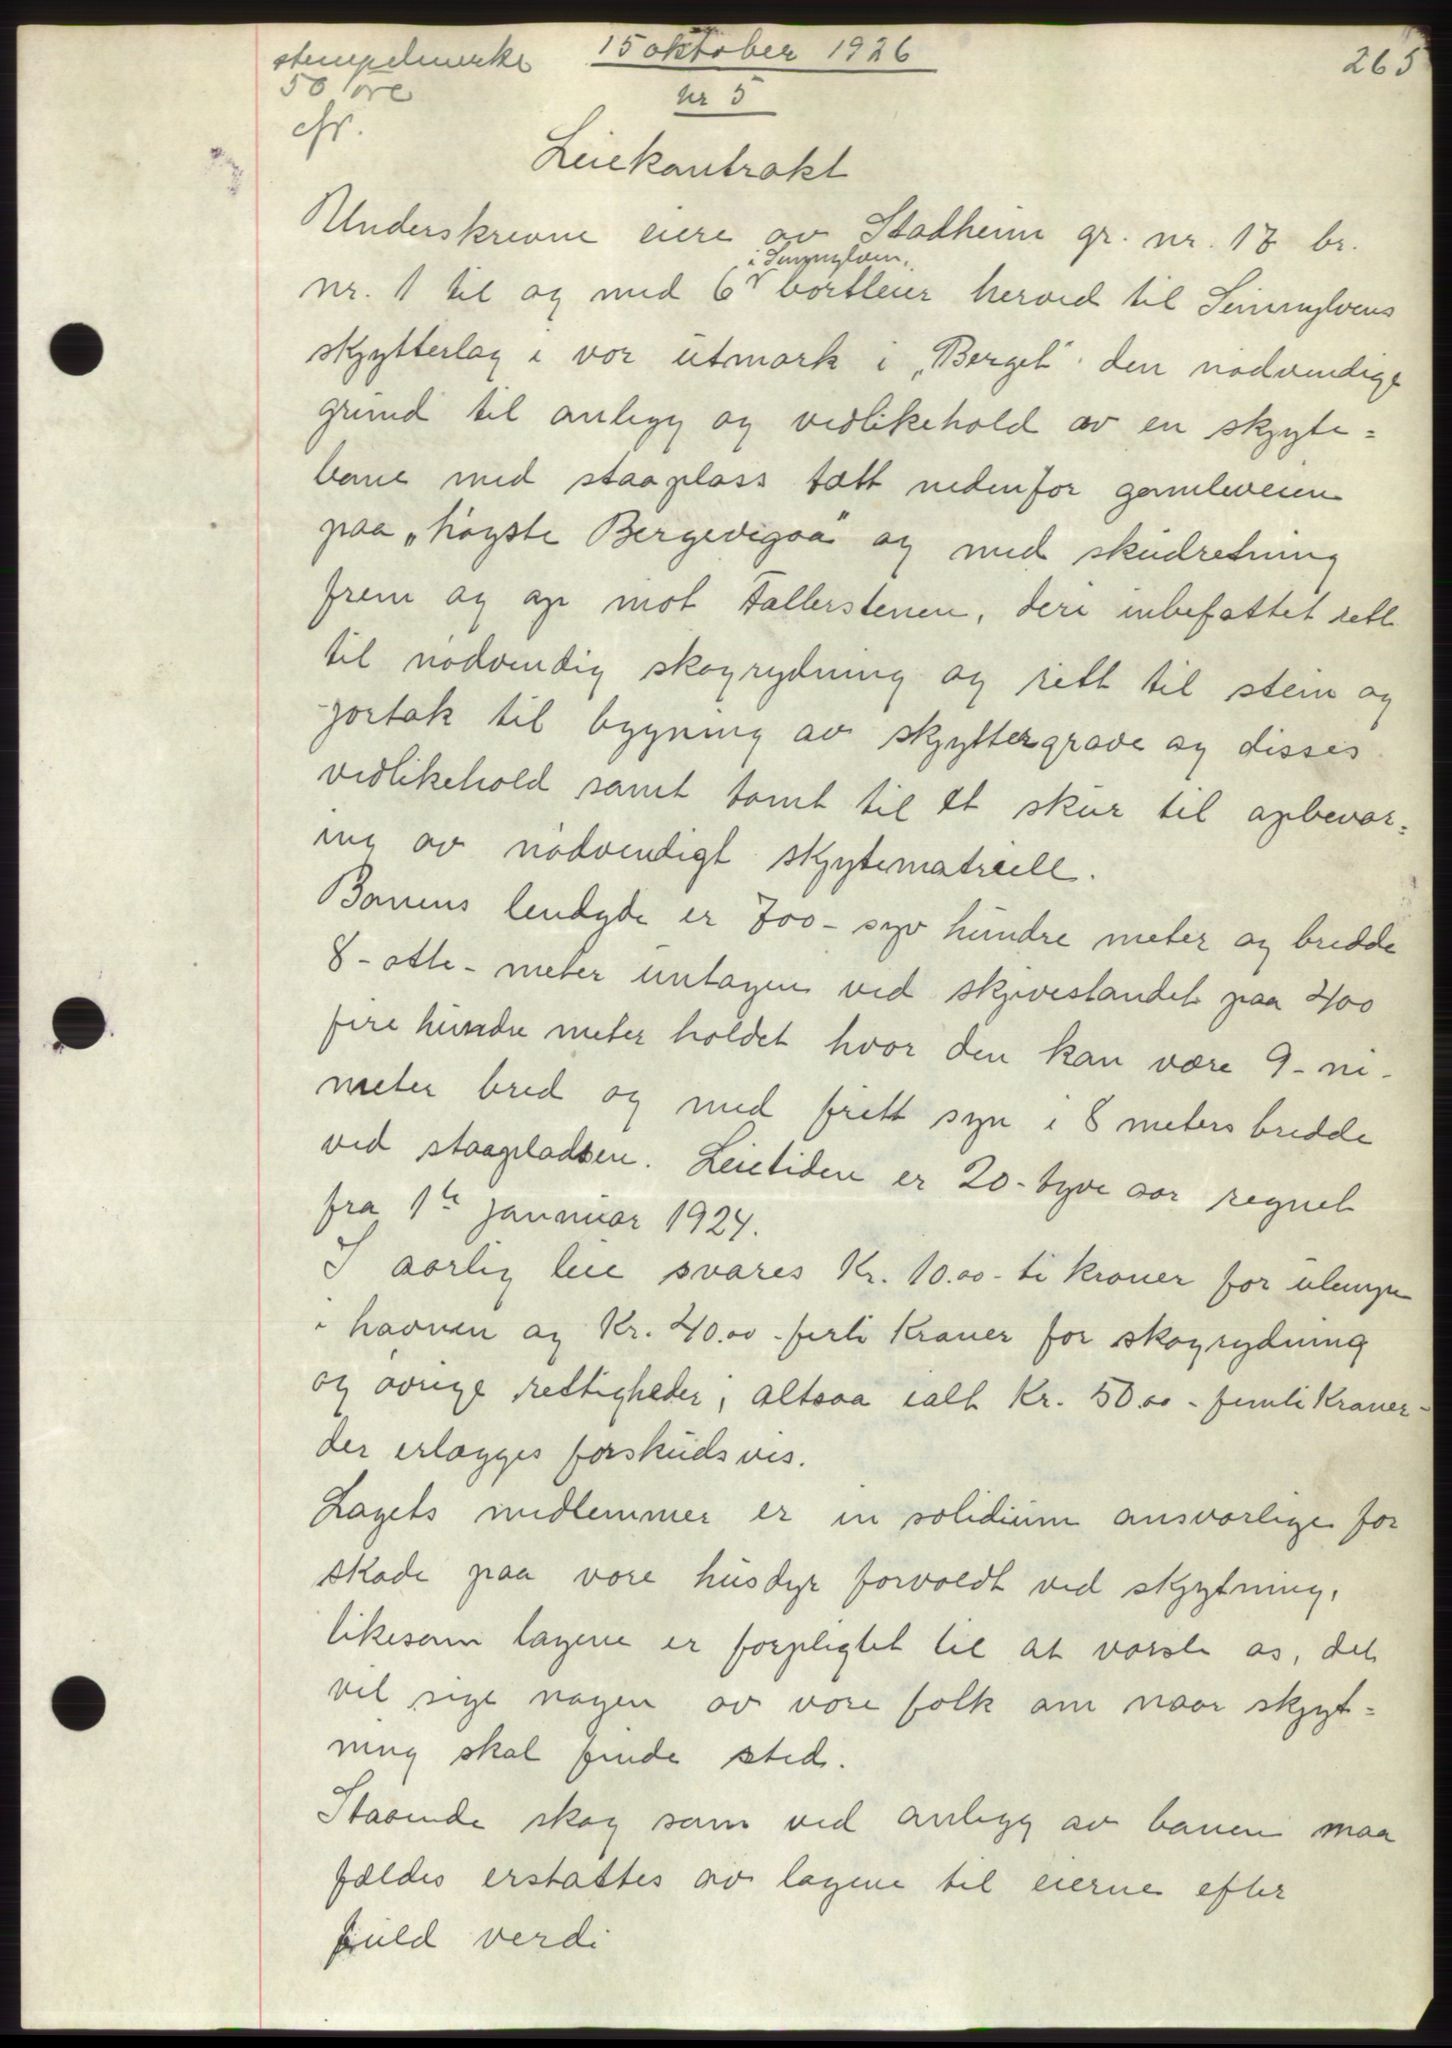 15 oktober 1926
265
stempelmerke
50 øre
nr 5
Leiekontrakt
Underskrevne eiere av Stadheim gr. nr. 17 br.
i Sunnylven,
nr. 1 til og med 6 bortleier herved til Sunnylvens
skytterlag i vor utmark i „Berget" den nødvendige
grund til anlegg og vedlikehold av en skyte=
bane med staaplass tætt nedenfor gamleveien
paa „høgste Bergevegaa" og med skudretning
frem og op mot Fallerstenen, deri inbefattet rett
til nødvendig skogrydning og rett til stein og
jortak til bygning av skyttergrave og disses
vedlikehold samt tomt til et skur til opbevar=
ing av nødvendigt skytematriell.
Banens lengde er 700 - syv hundre meter og bredde
8 - otte - meter untagen ved skivestandet paa 400
fire hundre meter holdet hvor den kan være 9 - ni -
meter bred og med fritt syn i 8 meters bredde
ved staapladsen. Leietiden er 20 - tyve aar regnet
fra 1te januar 1924.
I aarlig leie svares Kr. 10.00 - ti kroner for ulempe
i havnen og Kr. 40.00 - firti Kroner for skogrydning
og øvrige rettigheder; altsaa ialt Kr. 50.00 - femti Kroner -
der erlægges forskudsvis.
Lagets medlemmer er in solidium ansvarlige for
skade paa vore husdyr forvoldt ved skytning,
likesom lagene er forpligtet til at varsle os, det
vil sige nogen av vore folk om naar skyt=
ning skal finde sted.
Staaende skog som ved anlegg av banen maa
fældes erstattes av lagene til eierne efter
fuld verdi